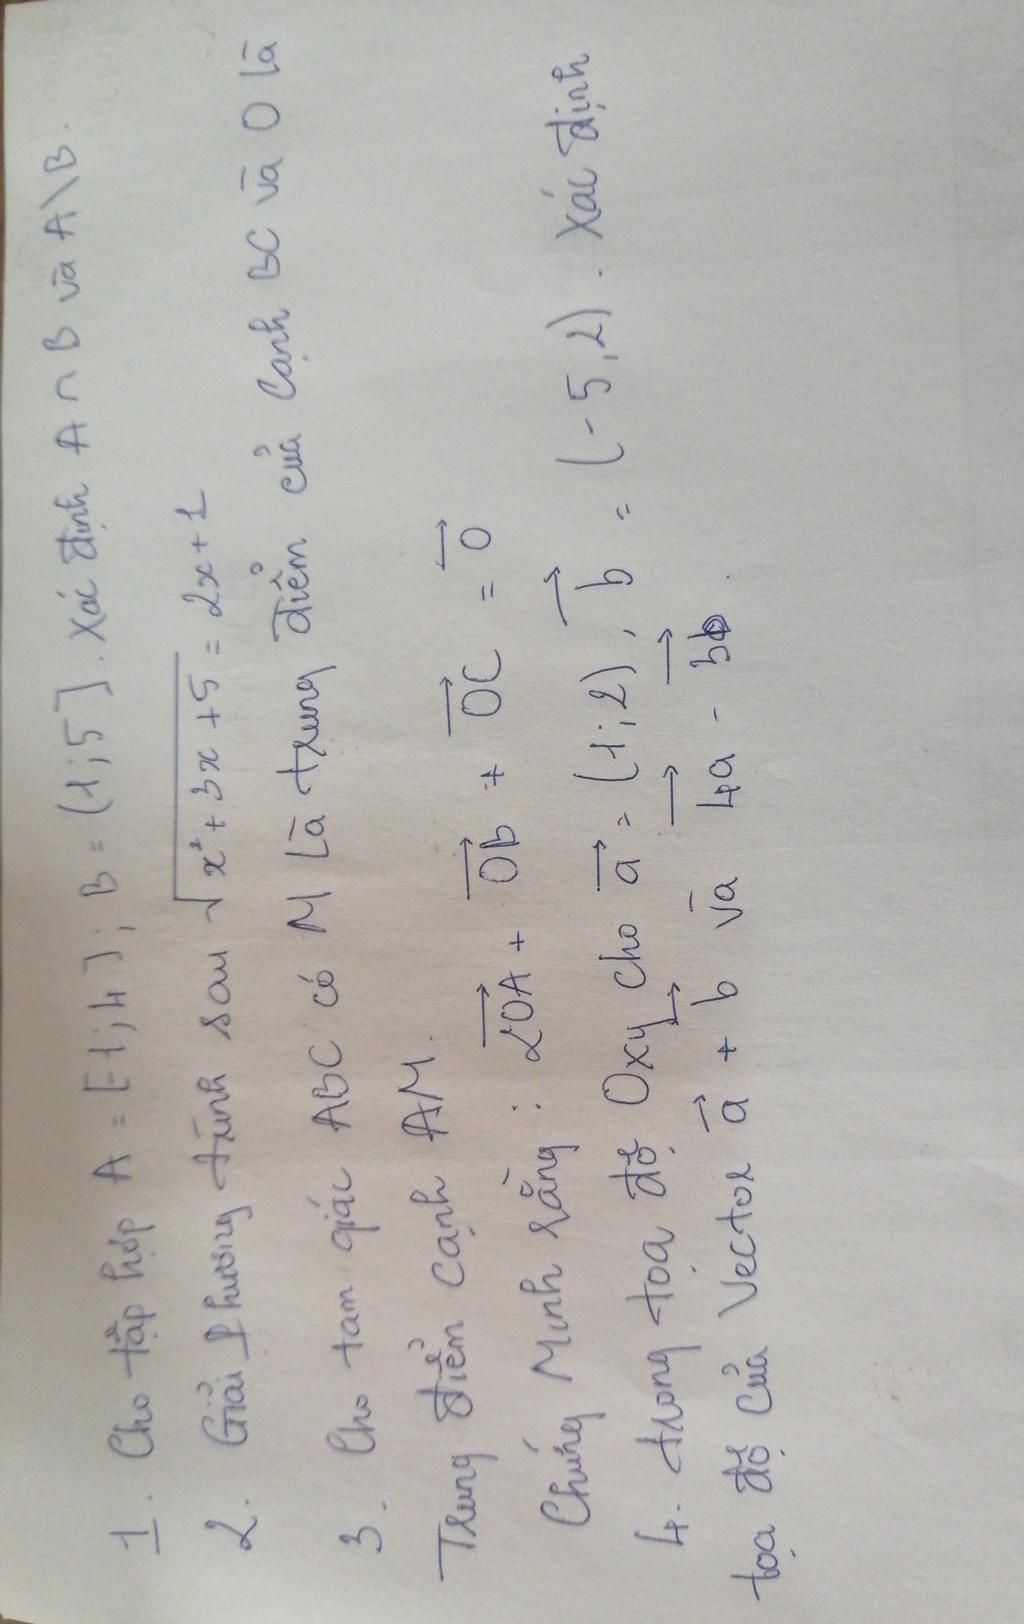 1. Cho tập hợp A = [-1;4]; B = (1;5]. Xác định A ∩ B và A\B.
2. Giải phương trình sau √x²+3x+5 = 2x+1
3. Cho tam giác ABC có M là trung điểm của cạnh BC và O là
Trung điểm cạnh AM.
Chứng Minh rằng : 2OA + OB + OC = 0
4. trong tọa độ Oxy cho a = (1;2), b = (-5,2). Xác định
tọa độ của Vector a + b và 4a - 3b.